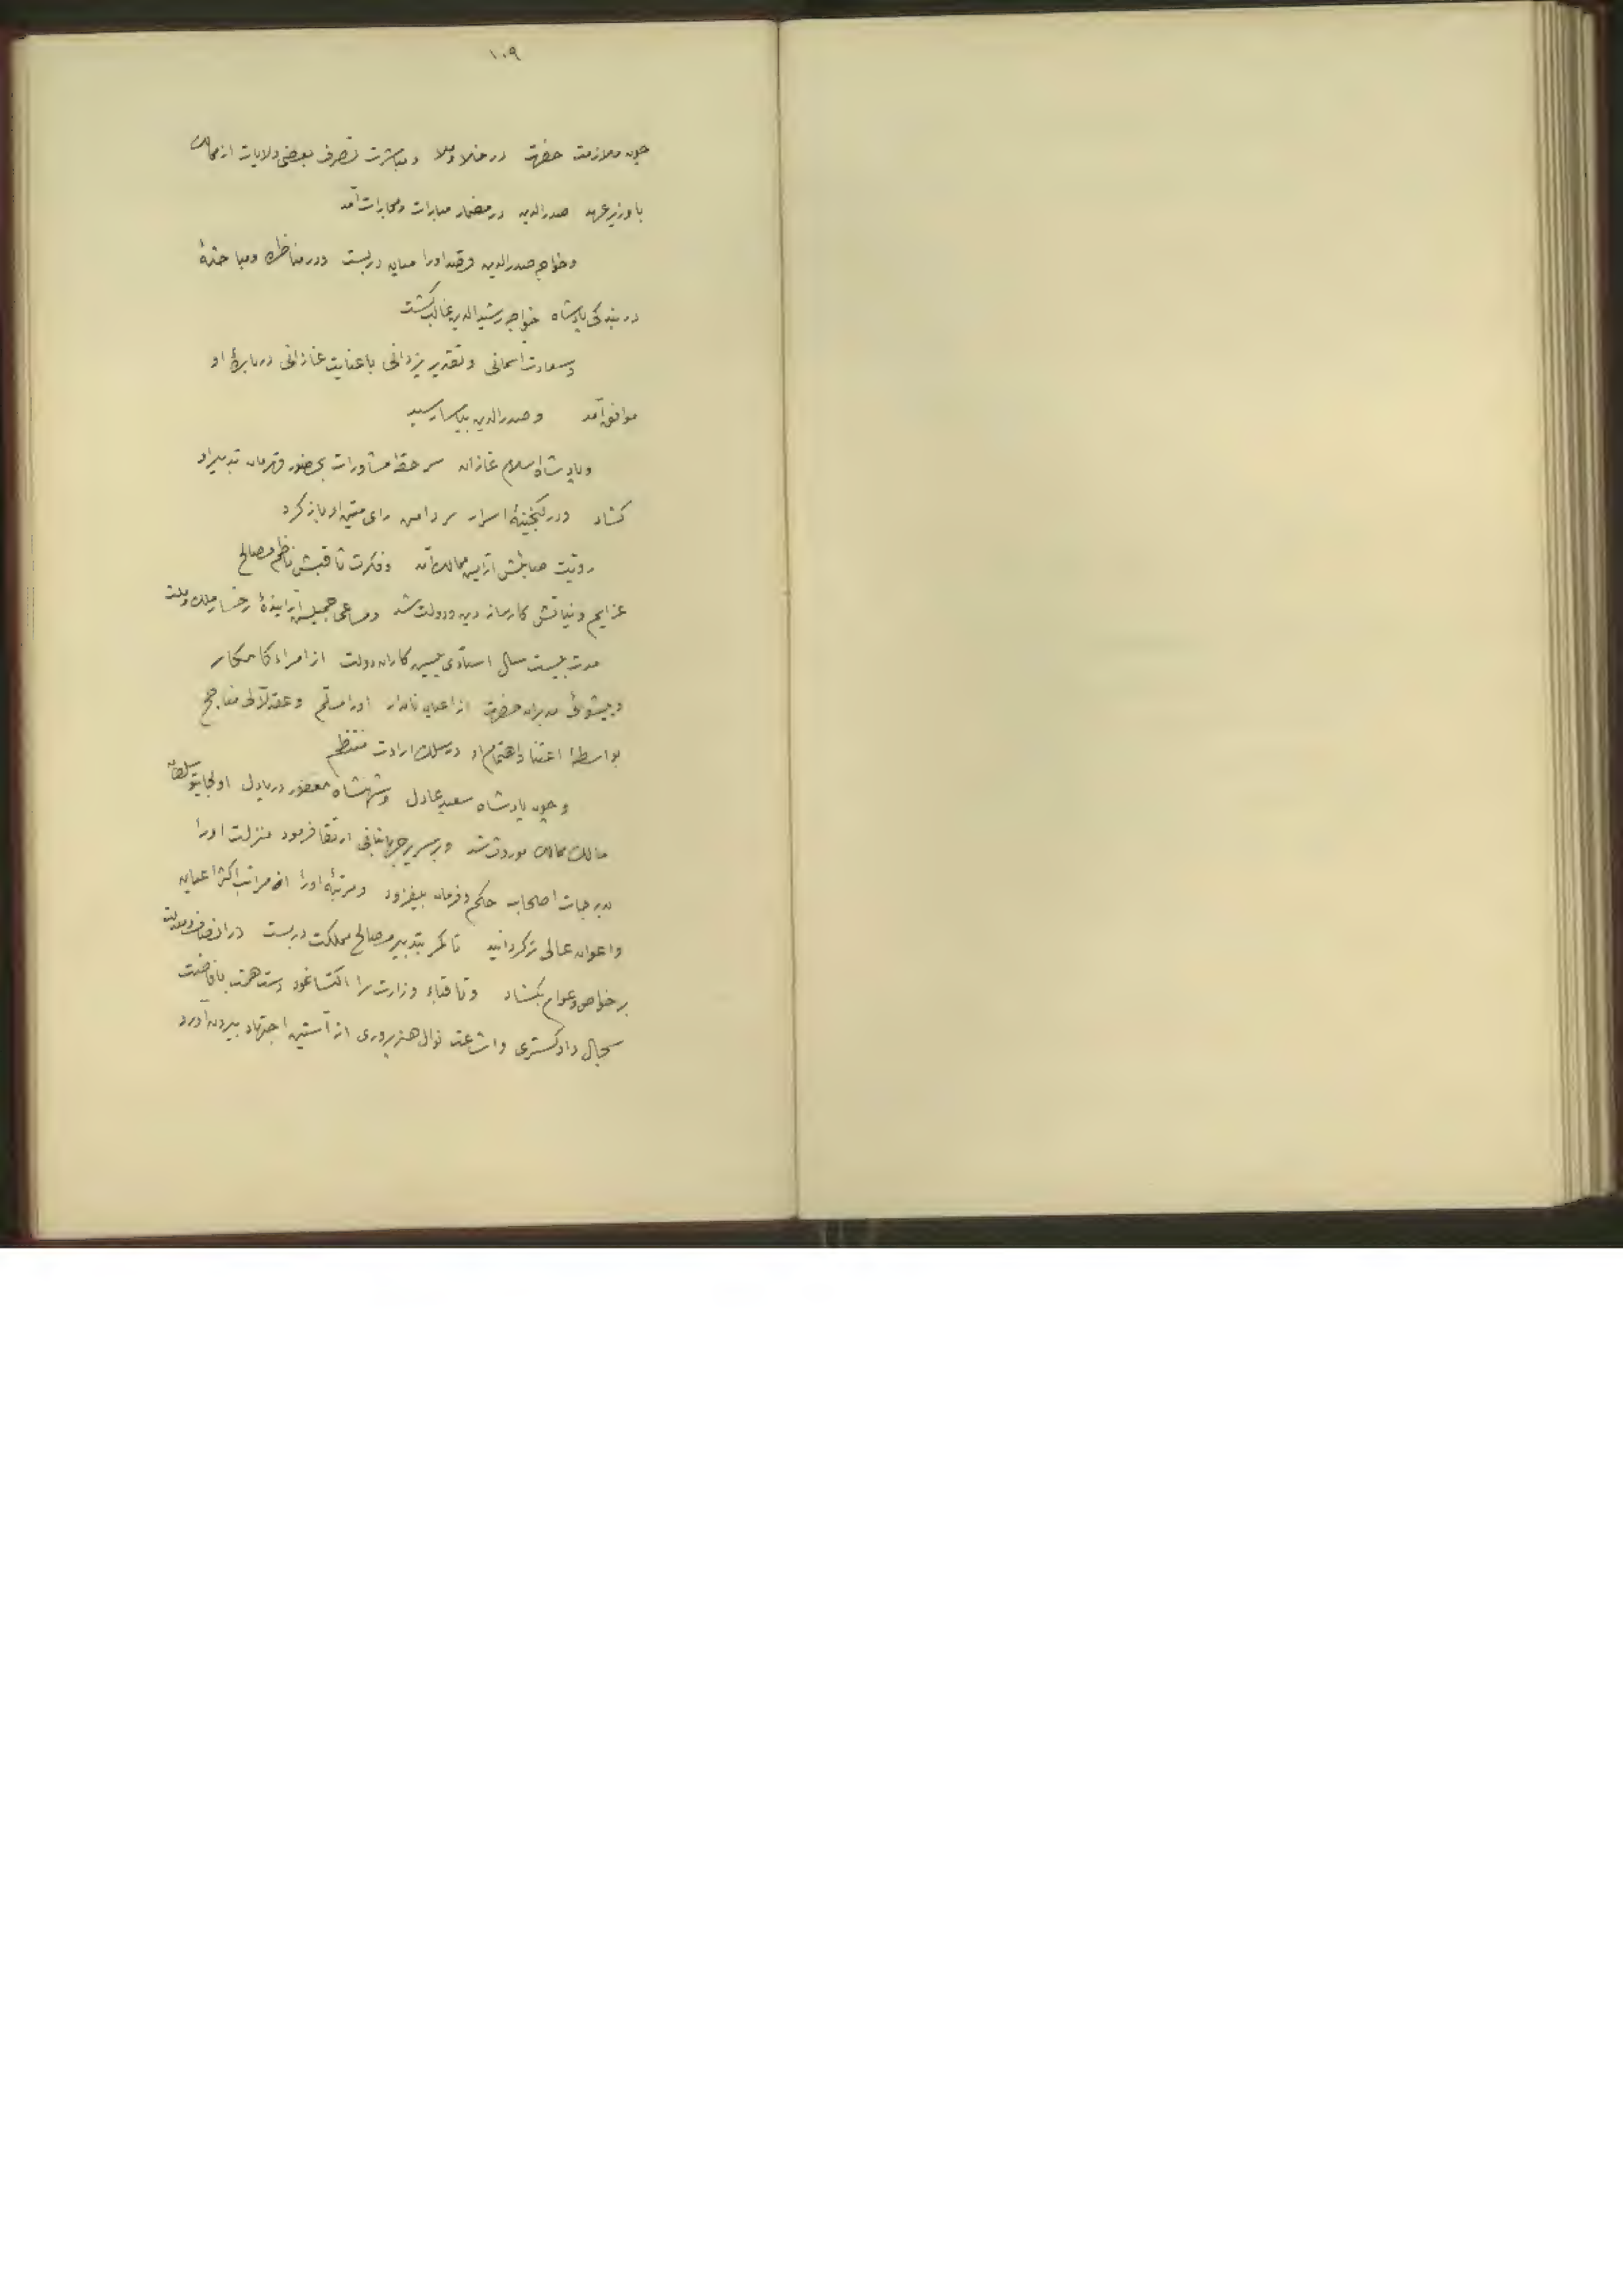 ١٠٩
چون ملازمت حضرت در خلا و ملا و مباشرت تصرف بعضی ولایات از ممالک
با وزیر عهد صدرالدین در مضمار مبارات و مجارات آمد
و خواجه صدرالدین قصد او را میان دربست و در مناظره و مباحثهٔ
در بندگی پادشاه خواجه رشیدالدین غالب گشت
و سعادت اسمانی و تقدیر یزدانی با عنایت غازانی در بارهٔ او
موافق آمد و صدرالدین بیاسا رسید
و پادشاه اسلام غازان سر حقهٔ مشاورات بحضور قهرمان تدبیر او
کشاد و در گنجینهٔ اسرار بر دامن رای متین او باز کرد
رویت صایبش آزین ممالک آمد و فکرت ثاقبش ناظم مصالح
عزایم و نیاتش کارساز دین و دولت شد و مساعی جمیلش آزایندهٔ رخسار ملک و ملت
مدت بیست سال استادی پیشه کاران دولت از امراء کامکار
و پیشوائی مدبران حضرت از اعیان نامدار او را مسلم و عقد لآلی مناجح
بواسطهٔ اعتنا و اهتمام او در سلک ارادت منتظم
و چون پادشاه سعید عادل و شهنشاه مغفور دریادل اولجایتو سلطان
مالک ممالک موروث شد و بر سریر جهانبانی ارتقا فرمود منزلت او را
بدرجات اصحاب حکم و فرمان بیفزود و مرتبهٔ او را از مراتب اکثر اعیان
و اعوان عالی تر گردانید تا کمر بتدبیر مصالح مملکت دربست در انصاف و معدلت
بر خواص و عوام بگشاد و تا قباء وزارت را اکتسا نمود دست همت بافاضت
سجال دادگستری و اشاعت نوال هنرپروری از آستین اجتهاد بیرون آورد